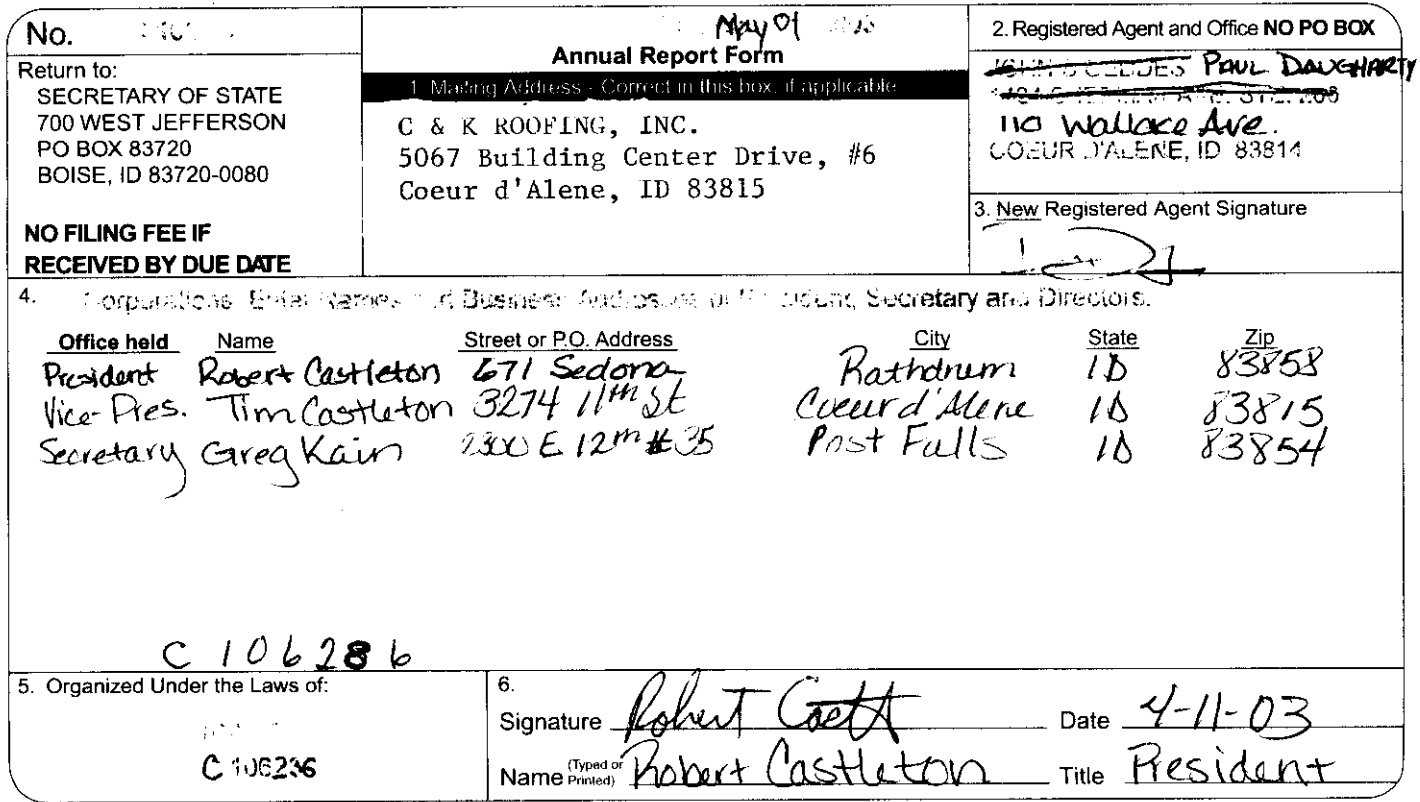 No.
Return to:
SECRETARY OF STATE
700 WEST JEFFERSON
PO BOX 83720
BOISE, ID 83720-0080
NO FILING FEE IF
RECEIVED BY DUE DATE
May 01
Annual Report Form
1. Mailing Address - Correct in this box, if applicable
C & K ROOFING, INC.
5067 Building Center Drive, #6
Coeur d'Alene, ID 83815
2. Registered Agent and Office NO PO BOX
PAUL DAUGHARTY
110 Wallace Ave.
COEUR D'ALENE, ID 83814
3. New Registered Agent Signature
4. Corporations: Enter Names and Business Addresses of President, Secretary and Directors.
Office held Name Street or P.O. Address City State Zip
President Robert Castleton 671 Sedona Rathdrum ID 83858
Vice-Pres. Tim Castleton 3274 11th St Coeur d'Alene ID 83815
Secretary Greg Kain 2300 E 12th #35 Post Falls ID 83854
C 106286
5. Organized Under the Laws of:
C 106286
6.
Signature Robert Date 4-11-03
Name (Typed or Printed) Robert Castleton Title President